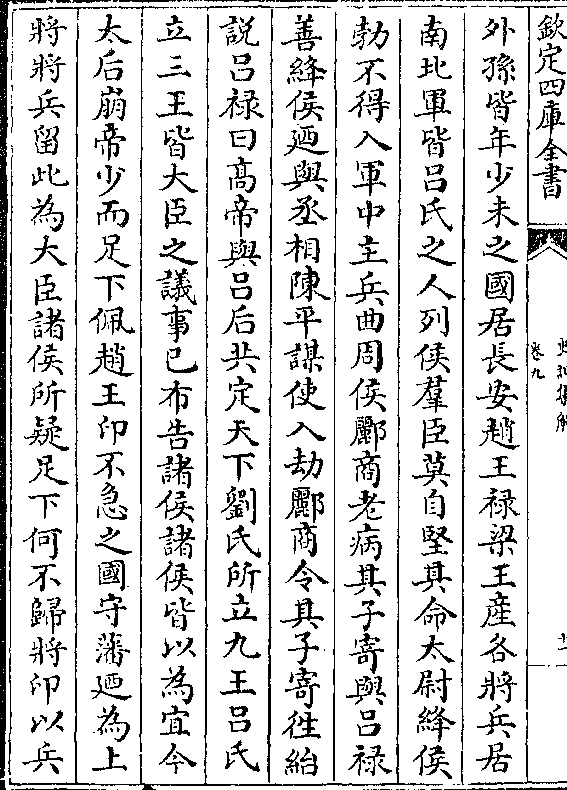 欽定四庫全書
史記集解
卷九
十一
外孫皆年少未之國居長安趙王祿梁王産各將兵居
南北軍皆吕氏之人列侯羣臣莫自堅其命太尉絳侯
勃不得入軍中主兵曲周侯酈商老病其子寄與吕祿
善絳侯廼與丞相陳平謀使人劫酈商令其子寄徃紿
説吕禄曰髙帝與吕后共定天下劉氏所立九王吕氏
立三王皆大臣之議事已布告諸侯諸侯皆以為宜今
太后崩帝少而足下佩趙王印不急之國守藩廼為上
將將兵留此為大臣諸侯所疑足下何不歸將印以兵